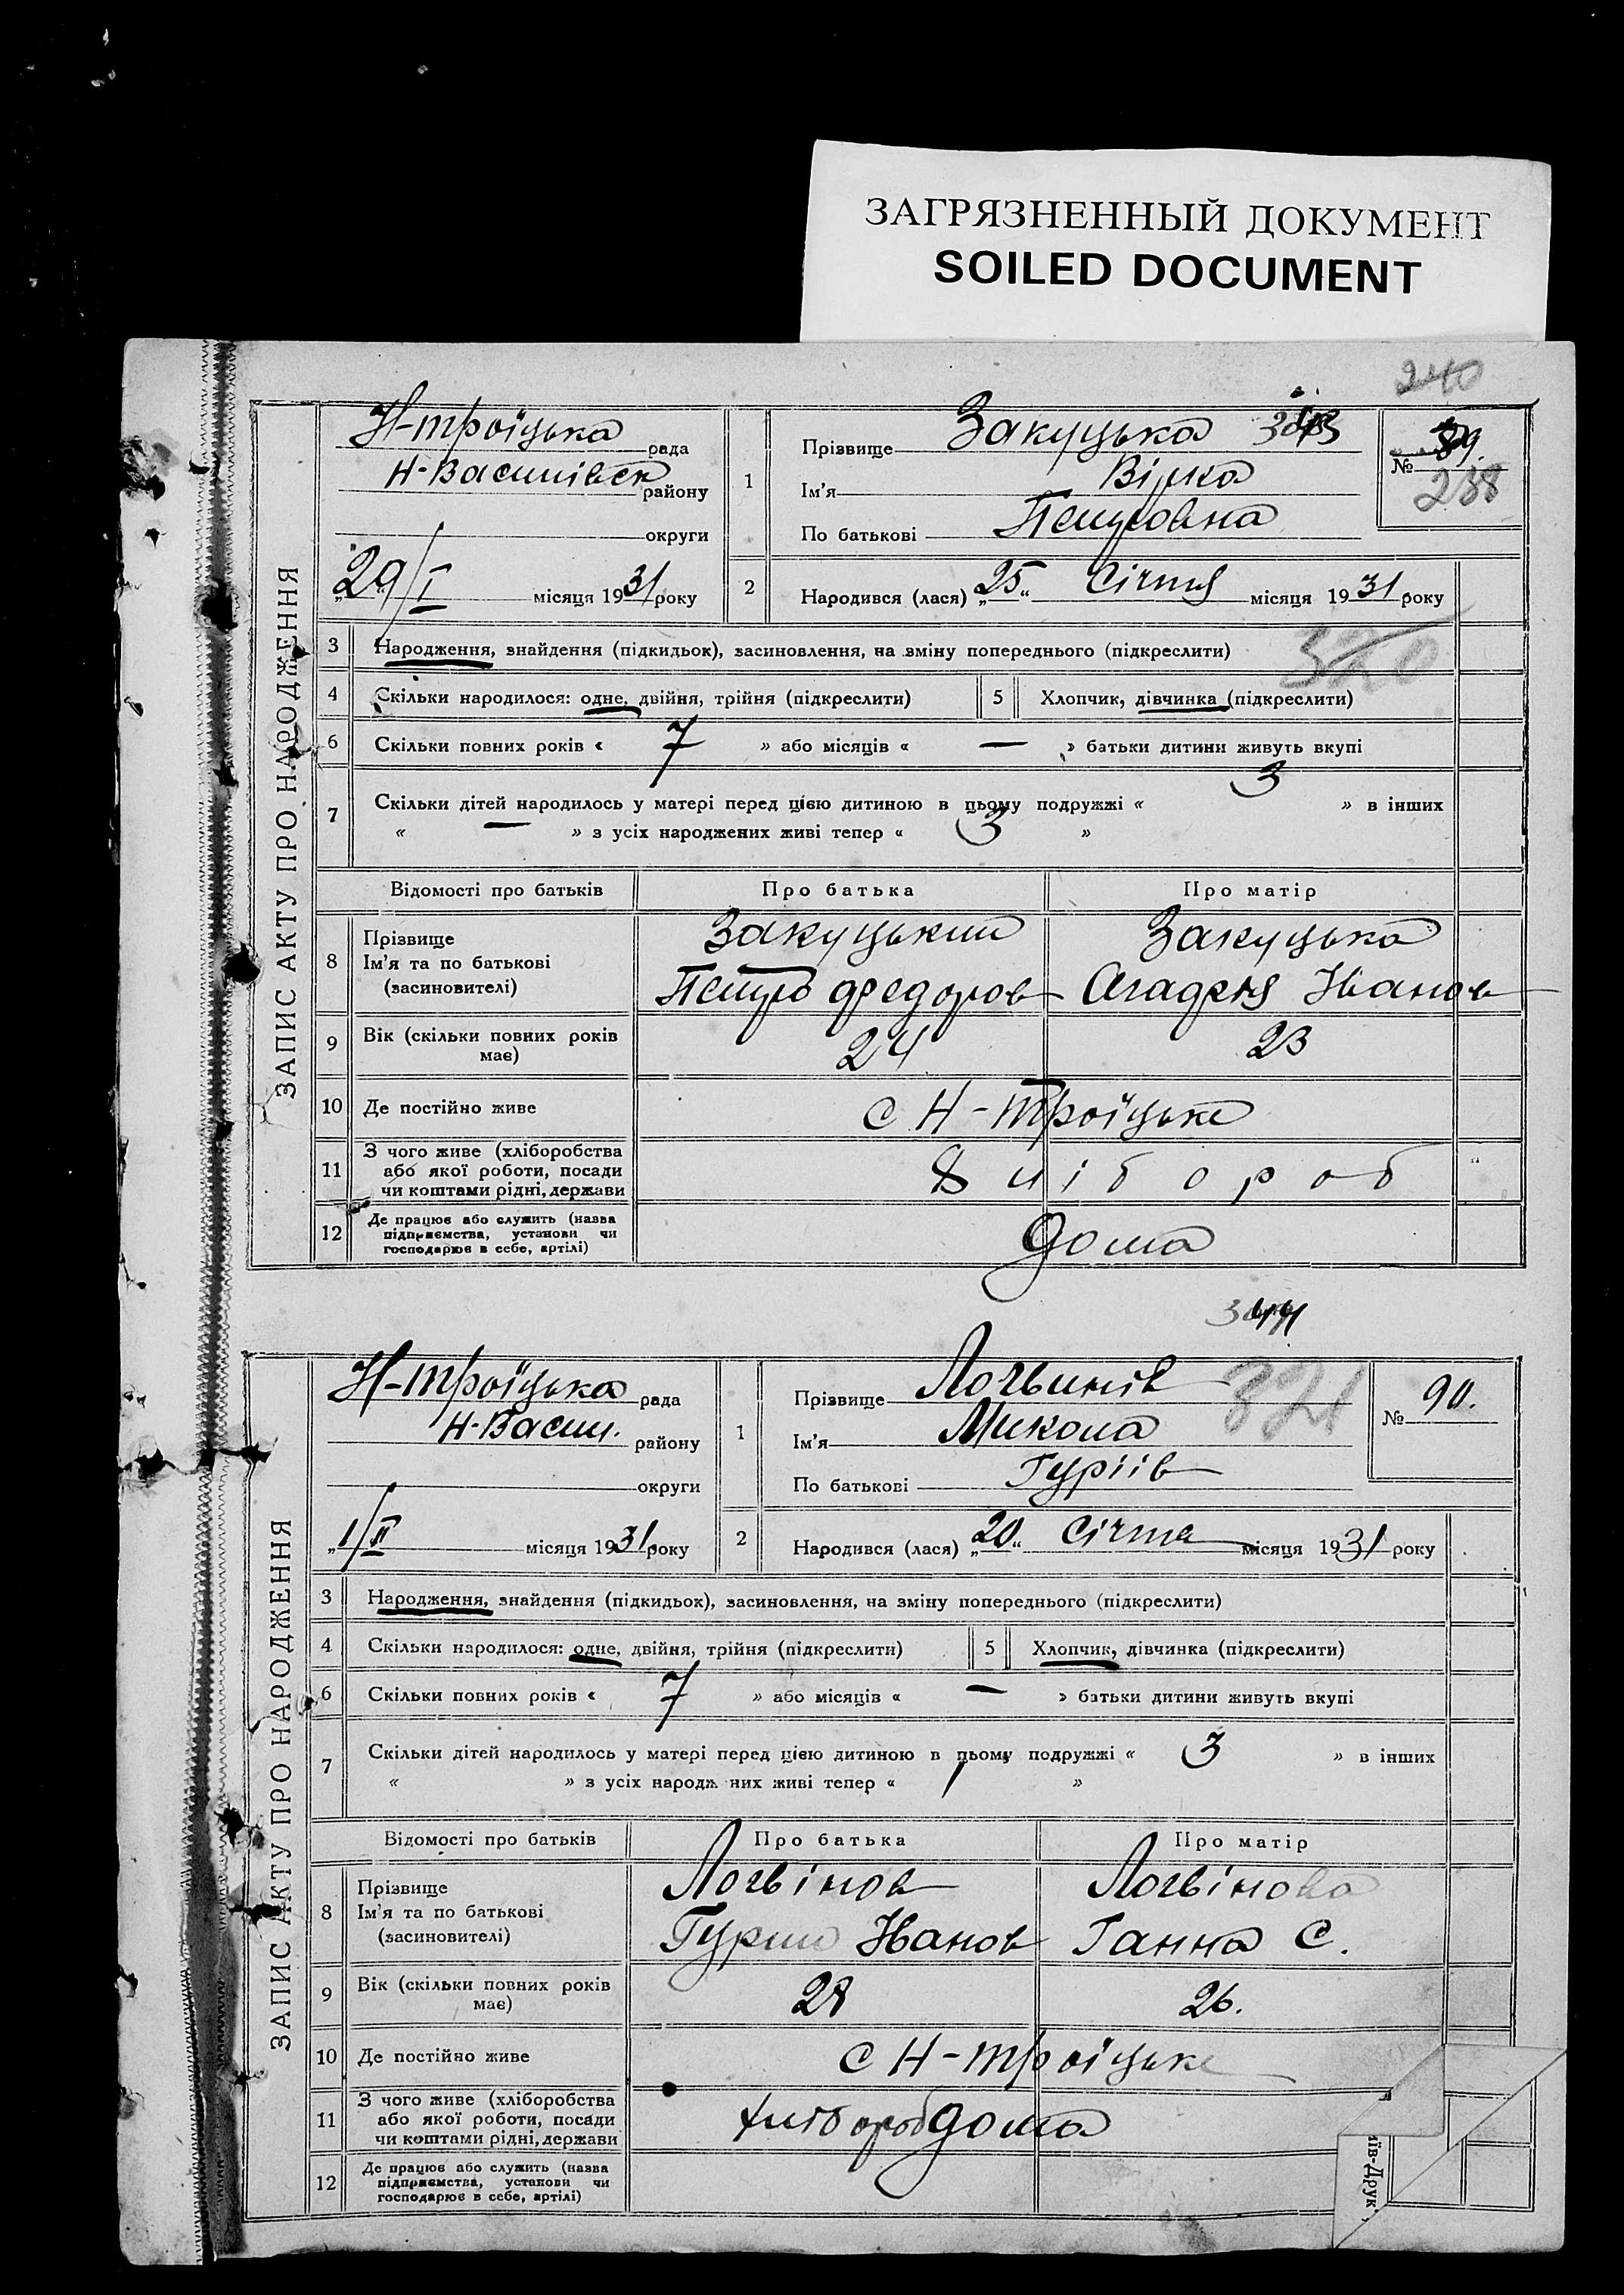 ЗАГРЯЗНЕННЫЙ ДОКУМЕНТ
SOILED DOCUMENT
240
ЗАПИС АКТУ ПРО НАРОДЖЕННЯ
Н-Троїцька рада
Н-Василівськ району
округи
29/I місяця 1931 року
1 Прізвище Закуцька
Ім'я Вірка
По батькові Петровна
№ 89.
238
2 Народився (лася) „25“ Січня місяця 1931 року
3 Народження, знайдення (підкидьок), засиновлення, на зміну попереднього (підкреслити)
320
4 Скільки народилося: одне, двійня, трійня (підкреслити) 5 Хлопчик, дівчинка (підкреслити)
6 Скільки повних років « 7 » або місяців « — » батьки дитини живуть вкупі
7 Скільки дітей народилось у матері перед цією дитиною в цьому подружжі « 3 » в інших
« — » з усіх народжених живі тепер « 3 »
Відомості про батьків Про батька Про матір
8 Прізвище Закуцький Закуцька
Ім'я та по батькові
(засиновителі) Петро Федоров Агафія Иванов
9 Вік (скільки повних років має) 24 23
10 Де постійно живе с Н-Троїцьке
11 З чого живе (хліборобства
або якої роботи, посади
чи коштами рідні, держави Хлібороб
12 Де працює або служить (назва
підприємства, установи чи
господарює в себе, артілі) Дома
ЗАПИС АКТУ ПРО НАРОДЖЕННЯ
Н-Троїцька рада
Н-Васил. району
округи
„1/II місяця 1931 року
1 Прізвище Логвинів
321
Ім'я Микола
По батькові Гуріїв
№ 90.
2 Народився (лася) „20“ Січня місяця 1931 року
3 Народження, знайдення (підкидьок), засиновлення, на зміну попереднього (підкреслити)
4 Скільки народилося: одне, двійня, трійня (підкреслити) 5 Хлопчик, дівчинка (підкреслити)
6 Скільки повних років « 7 » або місяців « — » батьки дитини живуть вкупі
7 Скільки дітей народилось у матері перед цією дитиною в цьому подружжі « 3 » в інших
« » з усіх народж них живі тепер « 1 »
Відомості про батьків Про батька Про матір
8 Прізвище Логвінов Логвінова
Ім'я та по батькові
(засиновителі) Гурій Иванов Ганна С.
9 Вік (скільки повних років має) 28 26.
10 Де постійно живе с Н-Троїцьке
11 З чого живе (хліборобства
або якої роботи, посади
чи коштами рідні, держави хлібороб дома
12 Де працює або служить (назва
підприємства, установи чи
господарює в себе, артілі)
иїв-Друк